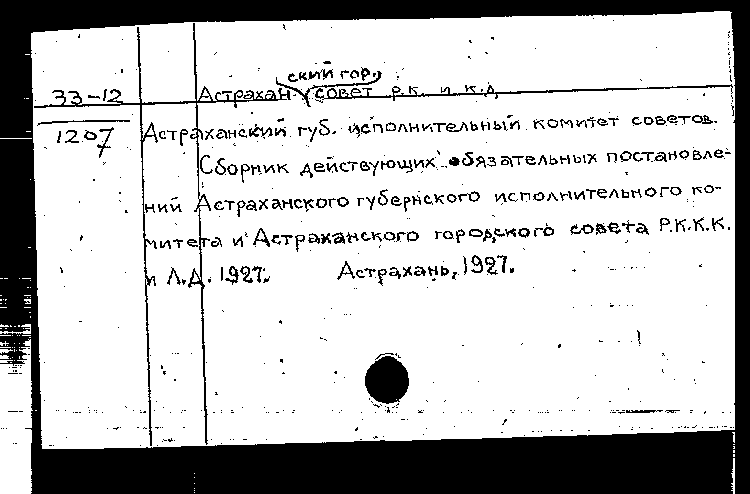 ский гор.
33-12 Астрахан совет р.к. и к.д.
1207 Астраханский губ. исполнительный комитет советов.
Сборник действующих обязательных постановле-
ний Астраханского губернского исполнительного ко-
митета и Астраханского городского совета Р.К.К.К.
и Л.Д. 1927. Астрахань, 1927.